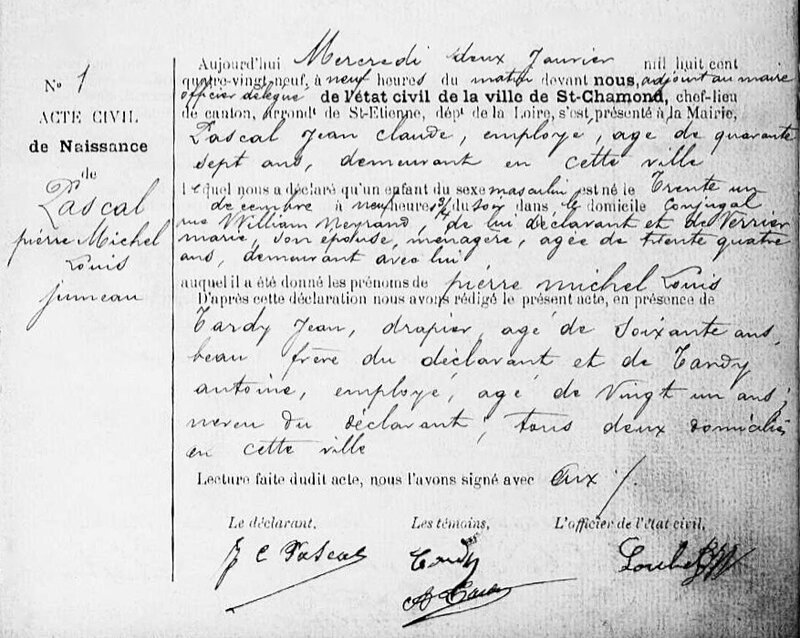 N° 1
ACTE CIVIL
de Naissance
de
Pascal
pierre Michel
Louis
jumeau
Aujourd'hui Mercredi deux Janvier mil huit cent
quatre-vingt-neuf, à neuf heures du matin devant nous, adjoint au maire
officier délégué de l'état civil de la ville de St-Chamond, chef-lieu
de canton, arrondt de St-Etienne, dépt de la Loire, s'est présenté à la Mairie,
Pascal Jean Claude, employé, agé de quarante
sept ans, demeurant en cette ville
lequel nous a déclaré qu'un enfant du sexe masculin est né le Trente un
decembre à neuf heures du soir dans le domicile conjugal
rue William Neyrand, de lui déclarant et de Verrier
marie, son épouse, ménagère, agée de trente quatre
ans, demeurant avec lui
auquel il a été donné les prénoms de pierre michel Louis
D'après cette déclaration nous avons rédigé le présent acte, en présence de
Tardy Jean, drapier, agé de soixante ans,
beau frère du déclarant et de Tardy
antoine, employé, agé de vingt un ans;
neveu du déclarant; tous deux domiciliés
en cette ville
Lecture faite dudit acte, nous l'avons signé avec eux
Le déclarant, Les témoins, L'officier de l'état civil,
J C Pascal Tardy